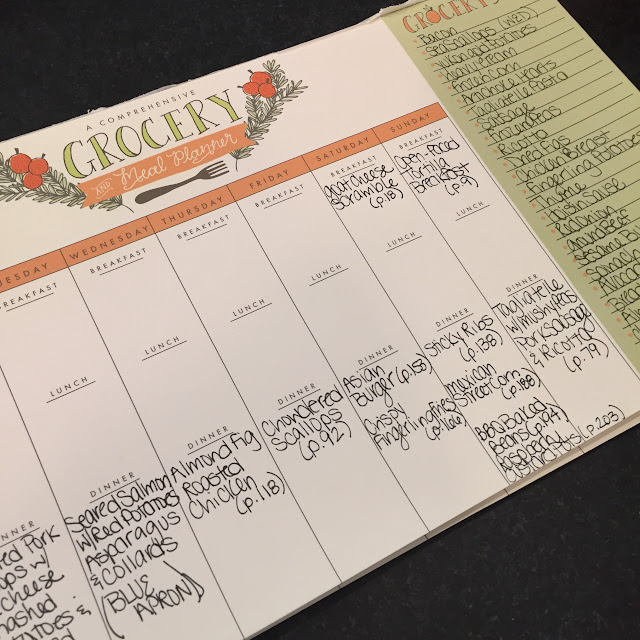 A COMPREHENSIVE
GROCERY
AND Meal Planner
UESDAY
LUNCH
NNER
red Pork
ps w/
cheese
mashed
atoes &
WEDNESDAY
BREAKFAST
LUNCH
DINNER
Seared Salmon
w/Red Potatoes
Asparagus
& Collards
(BLUE
APRON)
THURSDAY
BREAKFAST
LUNCH
DINNER
Almond Fig
Roasted
Chicken
(p.118)
FRIDAY
BREAKFAST
LUNCH
DINNER
Chowdered
Scallops
(p.92)
SATURDAY
BREAKFAST
Goat Cheese
Scramble
(p.13)
LUNCH
DINNER
Asian
Burger (p.153)
Crispy
Fingerling fries
(p.166)
SUNDAY
BREAKFAST
Open-faced
Tortilla
Breakfast
(p.9)
LUNCH
DINNER
Sticky Ribs
(p.138)
Mexican
Street Corn
(p.188)
BBQ Baked
Beans
Raspberry
p.203)
DINNER
Tagliatelle
w/Mushy Peas
Pork Sausage
& Ricotta
(p.79)
GROCERY
Bacon
Sea Scallops (WED)
Heavy Cream
Fresh Corn
Tagliatelle Pasta
Sausage
Frozen Peas
Ricotta
Dried Figs
Chicken Breast
Fingerling Potatoes
Red Onion
Ground Beef